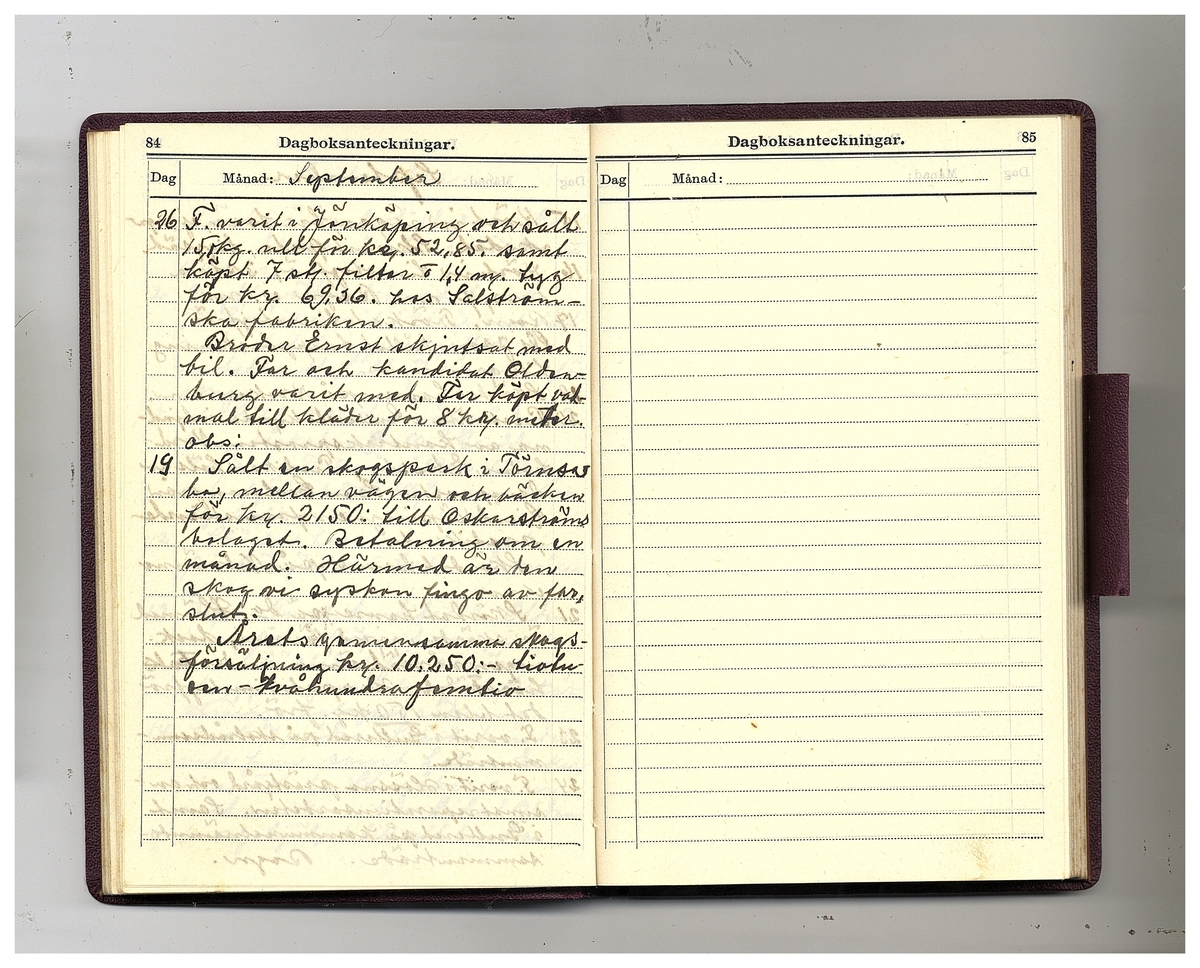 84
Dagboksanteckningar.
Dag
Månad: September
26 F. varit i Jönköping och sålt
15 kg. ull för kr. 52,85. samt
köpt 7 st. filtar o 1,4 m. tyg
för kr. 69,36. hos Salström-
ska fabriken.
Broder Ernst skjutsat med
bil. Far och kandidat Olden-
burg varit med. Far köpt val-
mal till kläder för 8 kr. meter.
obs:
19 Sålt en skogspark i Törnsa
bo, mellan vägen och bäcken
för kr. 2150: till Oskarströms
bolaget. Betalning om en
månad. Härmed är den
skog vi syskon fingo av far,
slut.
Årets gemensamma skogs-
försäljning kr. 10.250:- tiotu-
sen-tvåhundrafemtio
85
Dagboksanteckningar.
Dag
Månad: